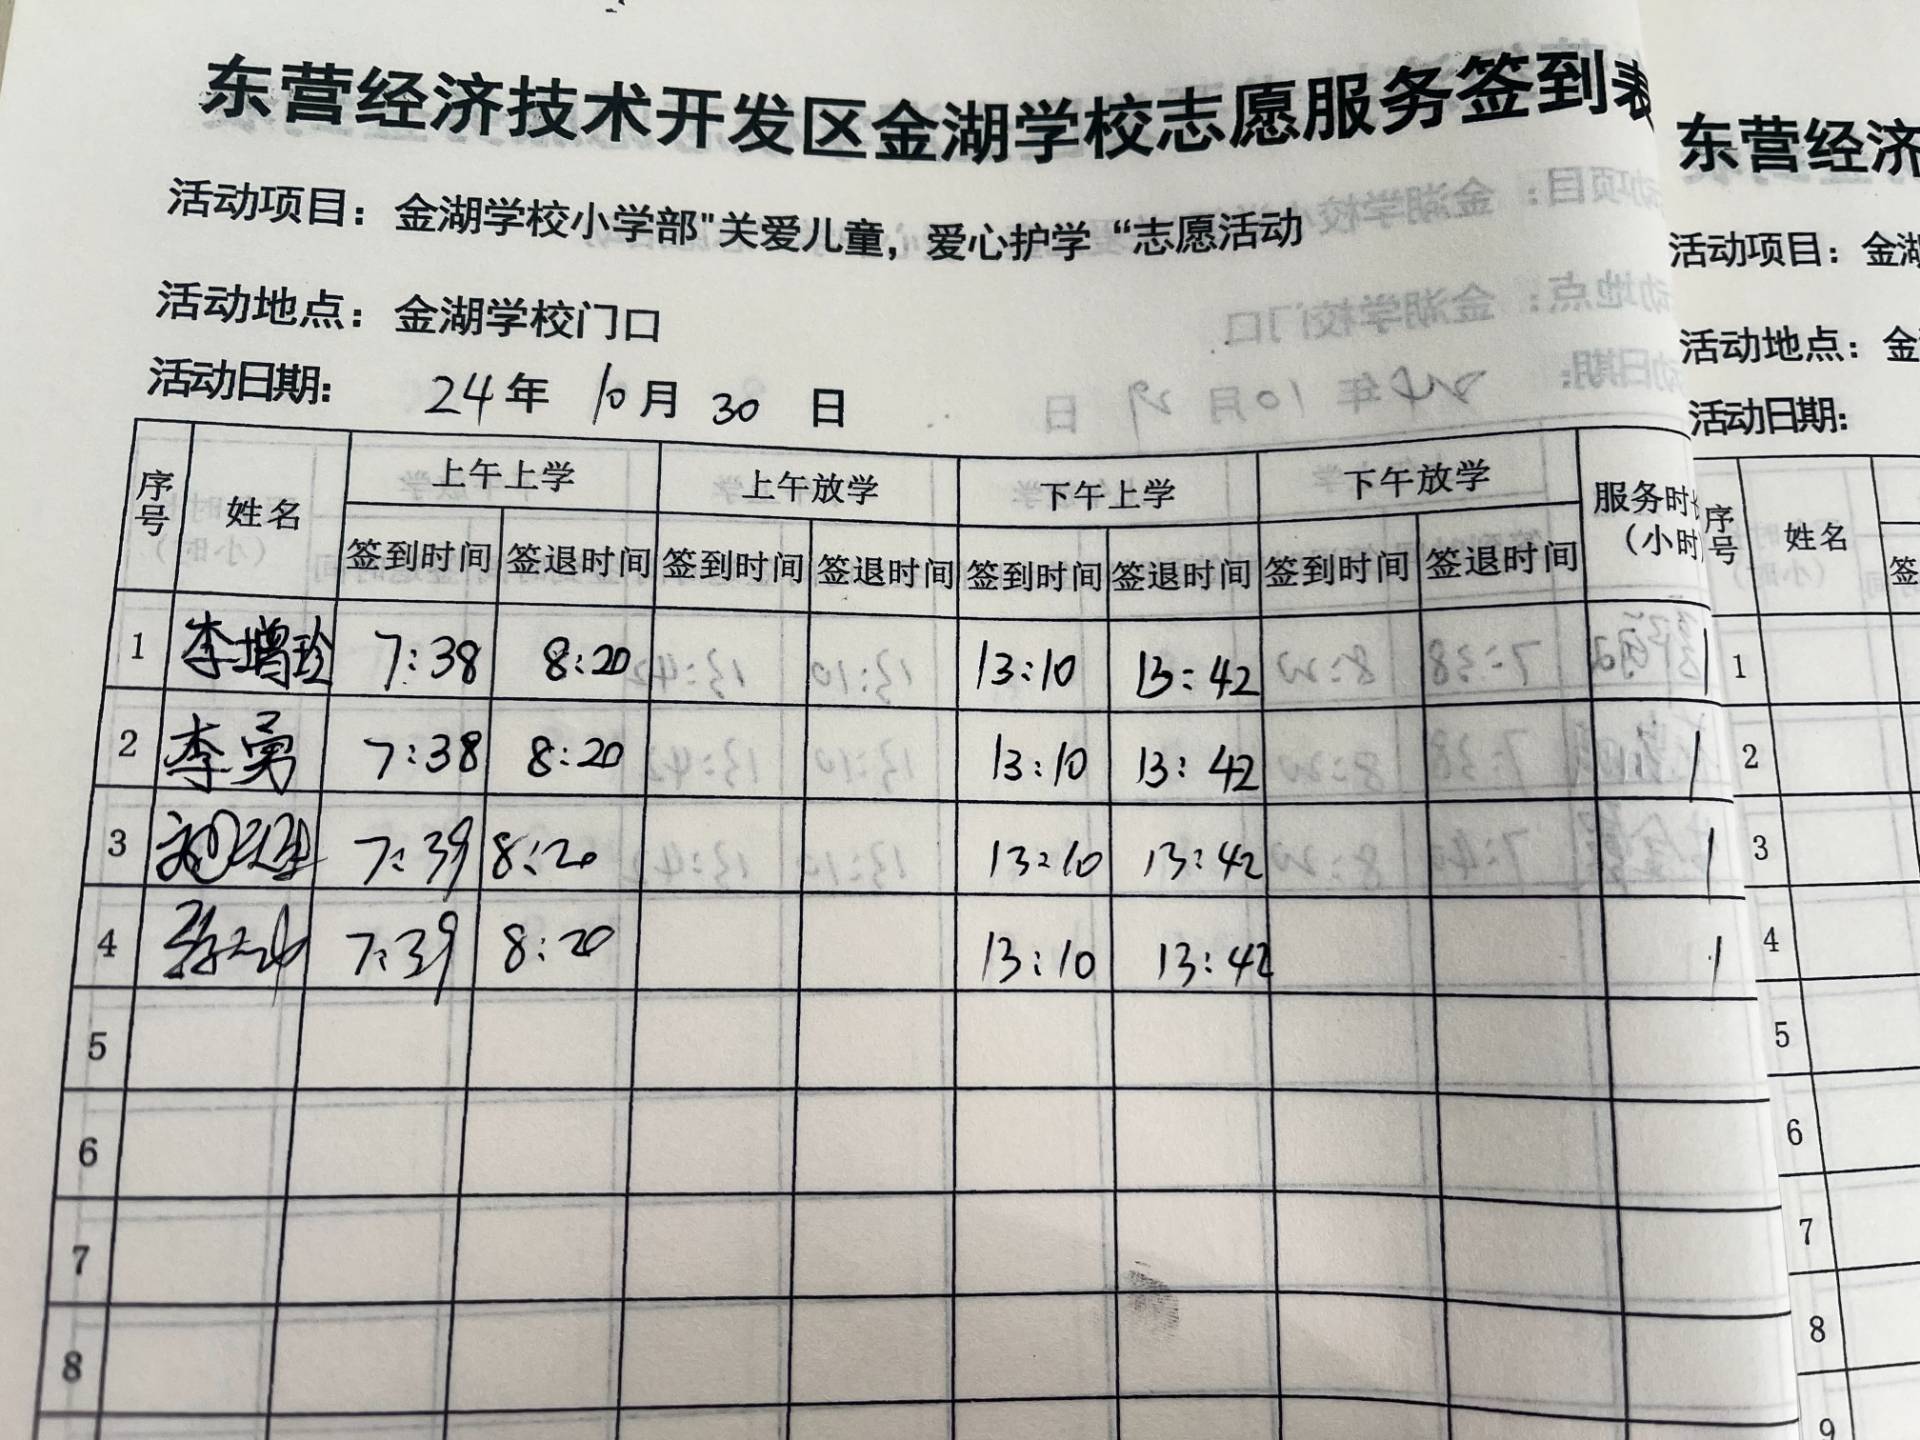 东营经济技术开发区金湖学校志愿服务签到表
活动项目：金湖学校小学部"关爱儿童，爱心护学“志愿活动
活动地点：金湖学校门口
活动日期： 24年 10月 30 日
序号 姓名 上午上学 上午放学 下午上学 下午放学 服务时长（小时
签到时间 签退时间 签到时间 签退时间 签到时间 签退时间 签到时间 签退时间
1 李增珍 7:38 8:20 13:10 13:42 1
2 李勇 7:38 8:20 13:10 13:42 1
3 7:39 8:20 13:10 13:42 1
4 7:39 8:20 13:10 13:42 1
5
6
7
8
东营经济
活动项目：金湖
活动地点：金
活动日期：
序号 姓名
签
1
2
3
4
5
6
7
8
9